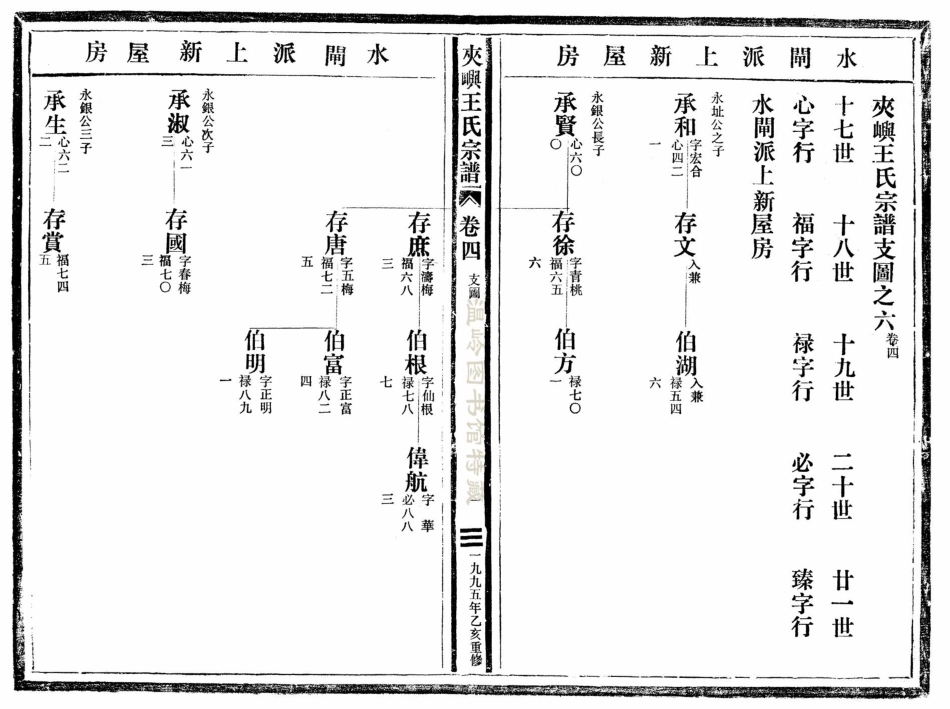 水閘派上新屋房
夾嶼王氏宗譜支圖之六卷四
十七世 十八世 十九世 二十世 廿一世
心字行 福字行 禄字行 必字行 臻字行
水閘派上新屋房
永址公之子
承和 字宏合 心四二一
存文 入兼
伯湖 入兼 禄五四六
永銀公長子
承賢 心六〇〇
存徐 字青桃 福六五六
伯方 禄七〇一
夾嶼王氏宗譜 卷四 支圖 三 一九九五年乙亥重修
温岭图书馆特藏
水閘派上新屋房
存庶 字濤梅 福六八三
伯根 字仙根 禄七八七
偉航 字華 必八八三
存唐 字五梅 福七二五
伯富 字正富 禄八二四
伯明 字正明 禄八九一
永銀公次子
承淑 心六一三
存國 字春梅 福七〇三
永銀公三子
承生 心六二二
存賞 福七四五